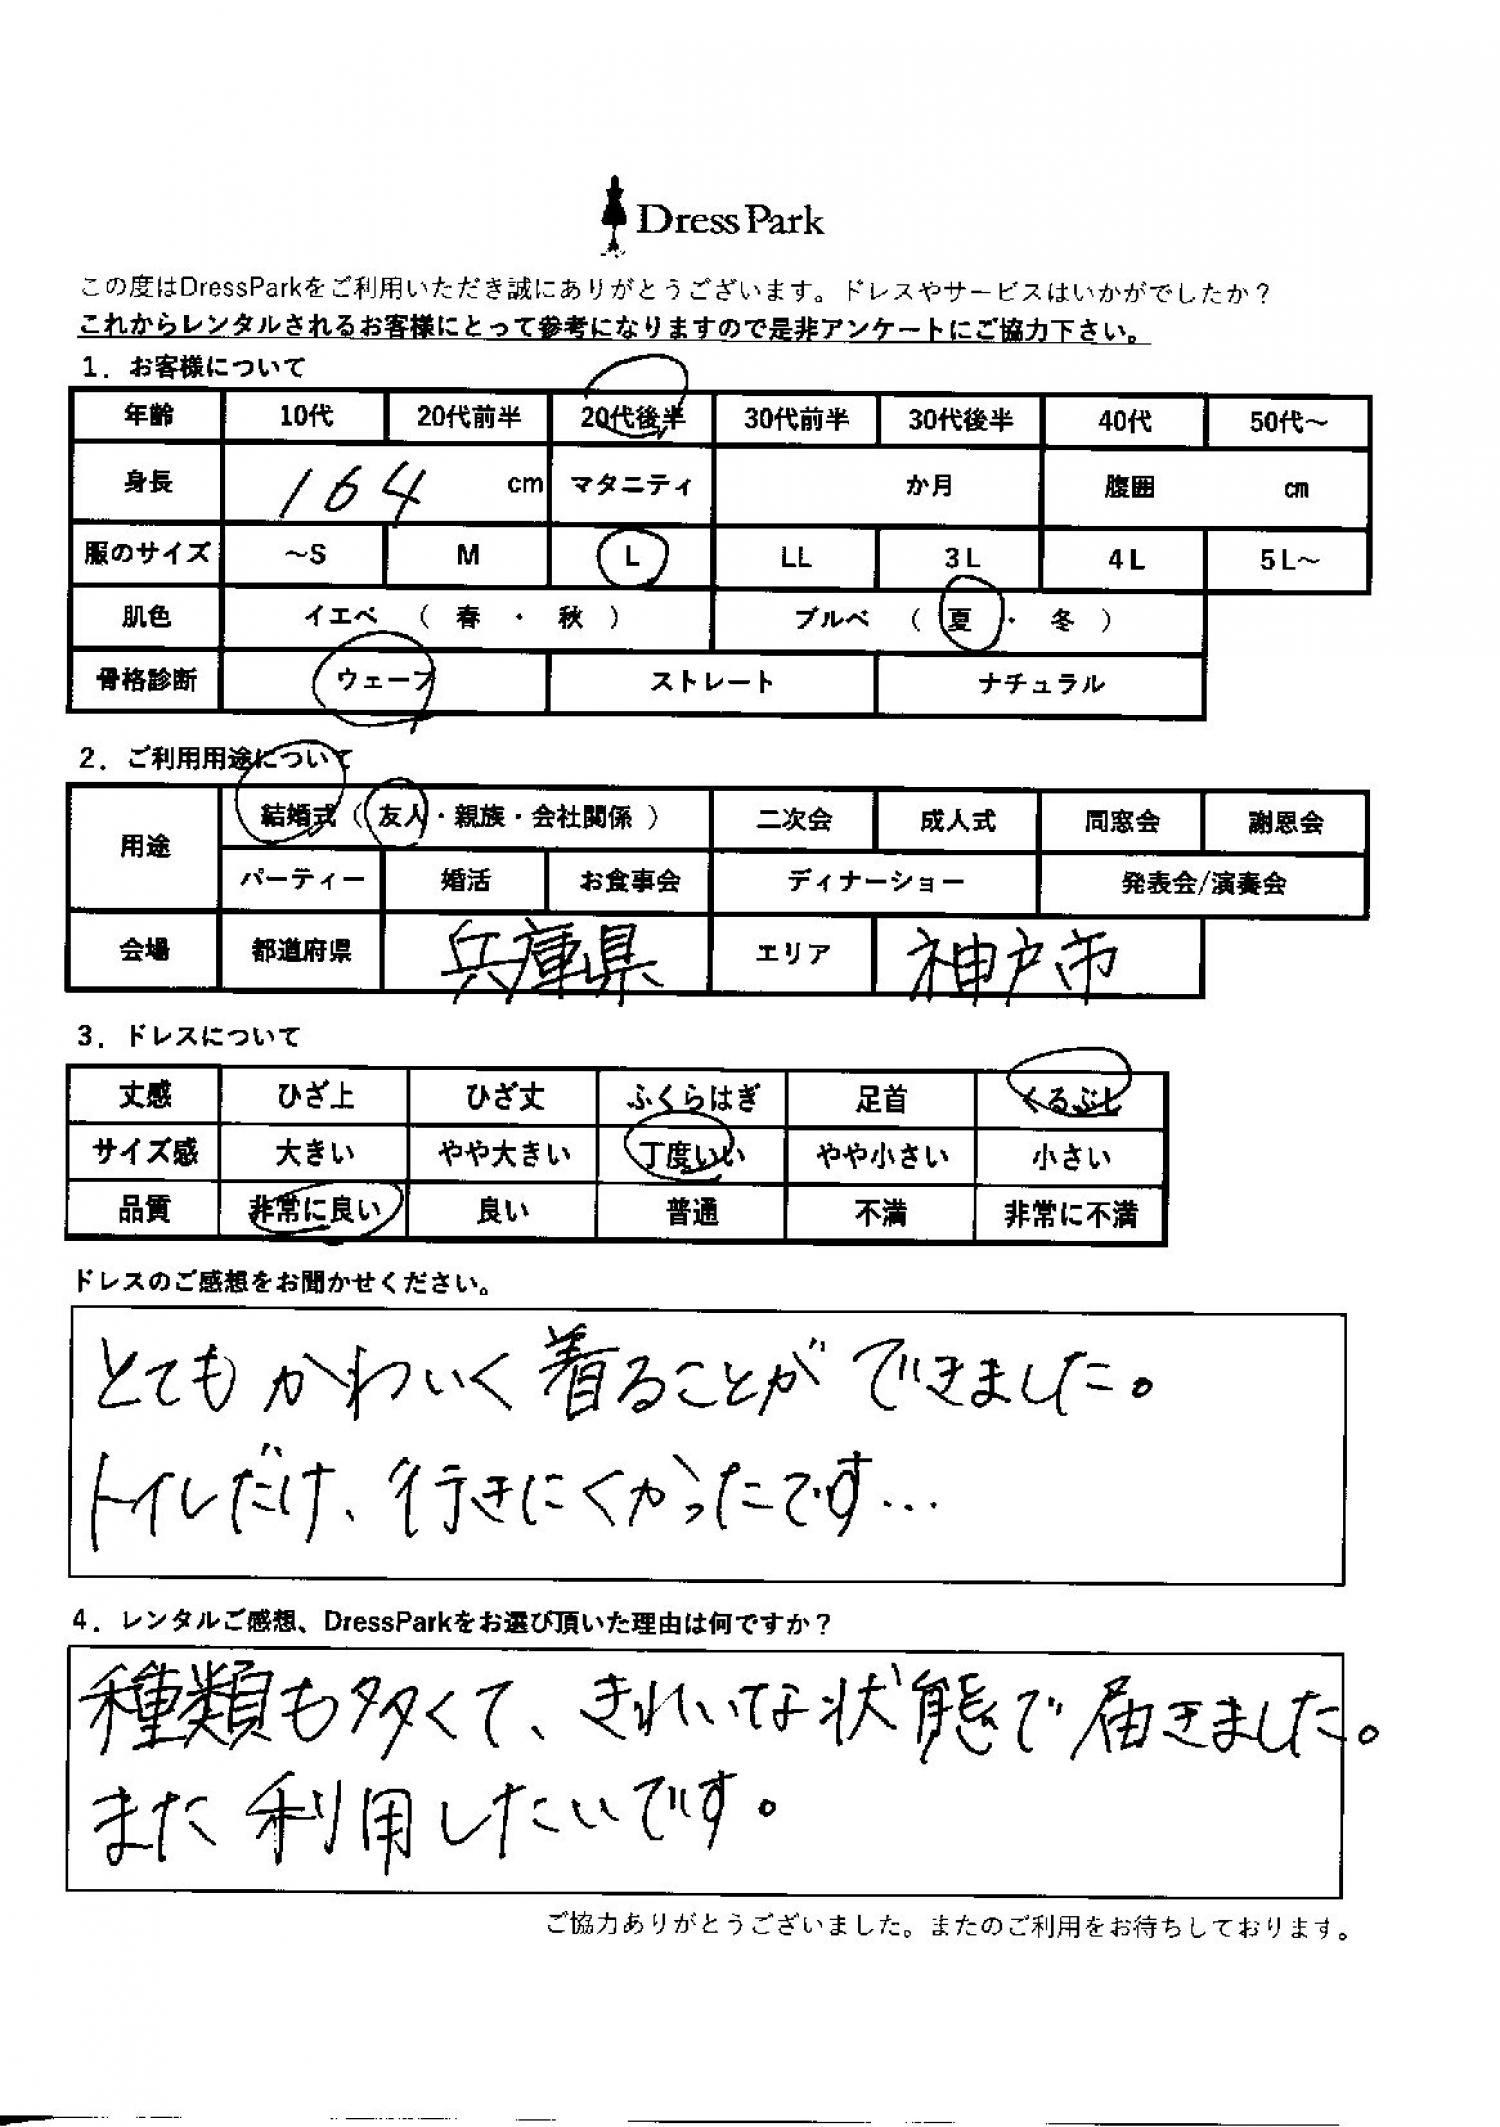 Dress Park
この度はDressParkをご利用いただき誠にありがとうございます。ドレスやサービスはいかがでしたか？
これからレンタルされるお客様にとって参考になりますので是非アンケートにご協力下さい。
1．お客様について
年齢 10代 20代前半 20代後半 30代前半 30代後半 40代 50代～
身長 164 cm マタニティ か月 腹囲 ㎝
服のサイズ ～S M L LL 3L 4L 5L～
肌色 イエベ （ 春 ・ 秋 ） ブルベ （ 夏 ・ 冬 ）
骨格診断 ウェーブ ストレート ナチュラル
2．ご利用用途について
用途 結婚式（ 友人・親族・会社関係 ） 二次会 成人式 同窓会 謝恩会
パーティー 婚活 お食事会 ディナーショー 発表会/演奏会
会場 都道府県 兵庫県 エリア 神戸市
3．ドレスについて
丈感 ひざ上 ひざ丈 ふくらはぎ 足首 くるぶし
サイズ感 大きい やや大きい 丁度いい やや小さい 小さい
品質 非常に良い 良い 普通 不満 非常に不満
ドレスのご感想をお聞かせください。
とてもかわいく着ることができました。
トイレだけ、行きにくかったです…
4．レンタルご感想、DressParkをお選び頂いた理由は何ですか？
種類も多くて、きれいな状態で届きました。
また利用したいです。
ご協力ありがとうございました。またのご利用をお待ちしております。